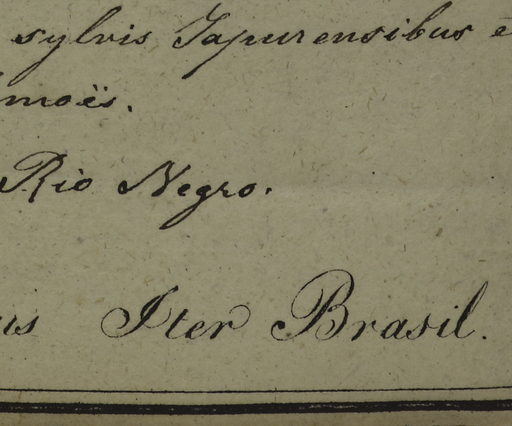 sylvis Japurensibus e
moës.
Rio Negro.
us Iter Brasil.